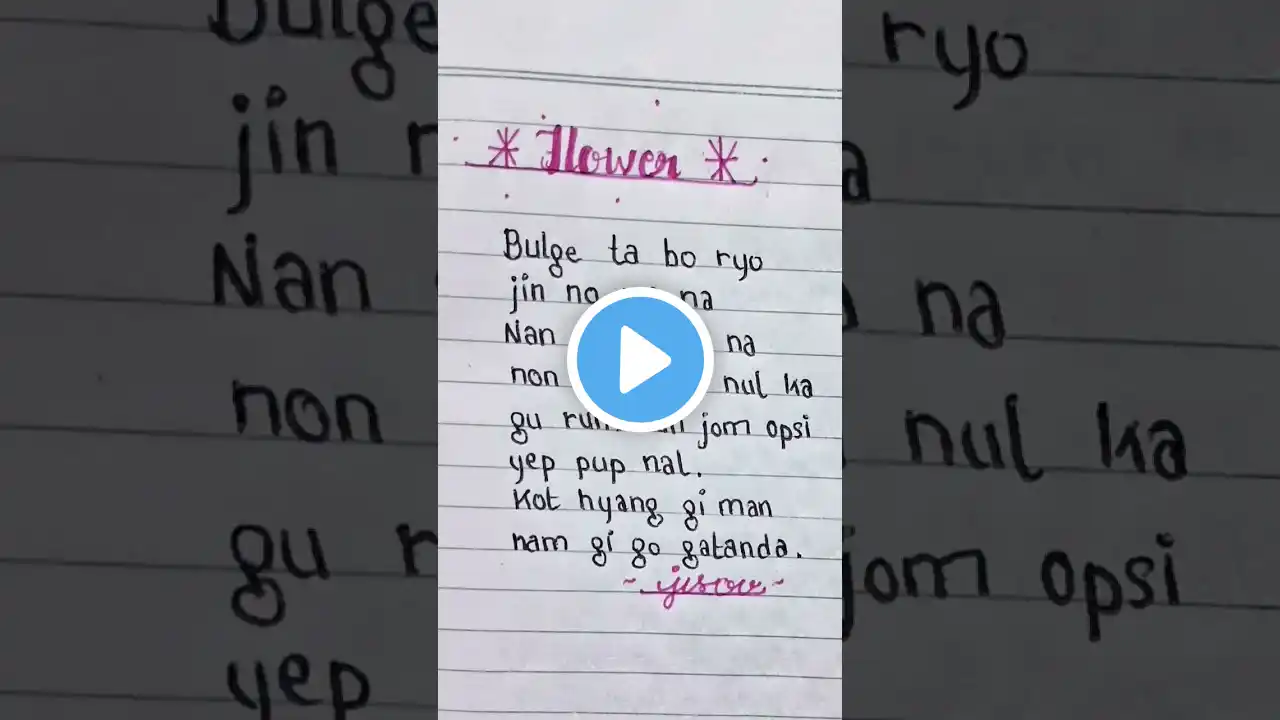 * Flower *
Bulge ta bo ryo
jin no na
Nan na
non nul ka
gu jom opsi
yep pup nal.
Kot hyang gi man
nam gi go gatanda.
- jisoo -